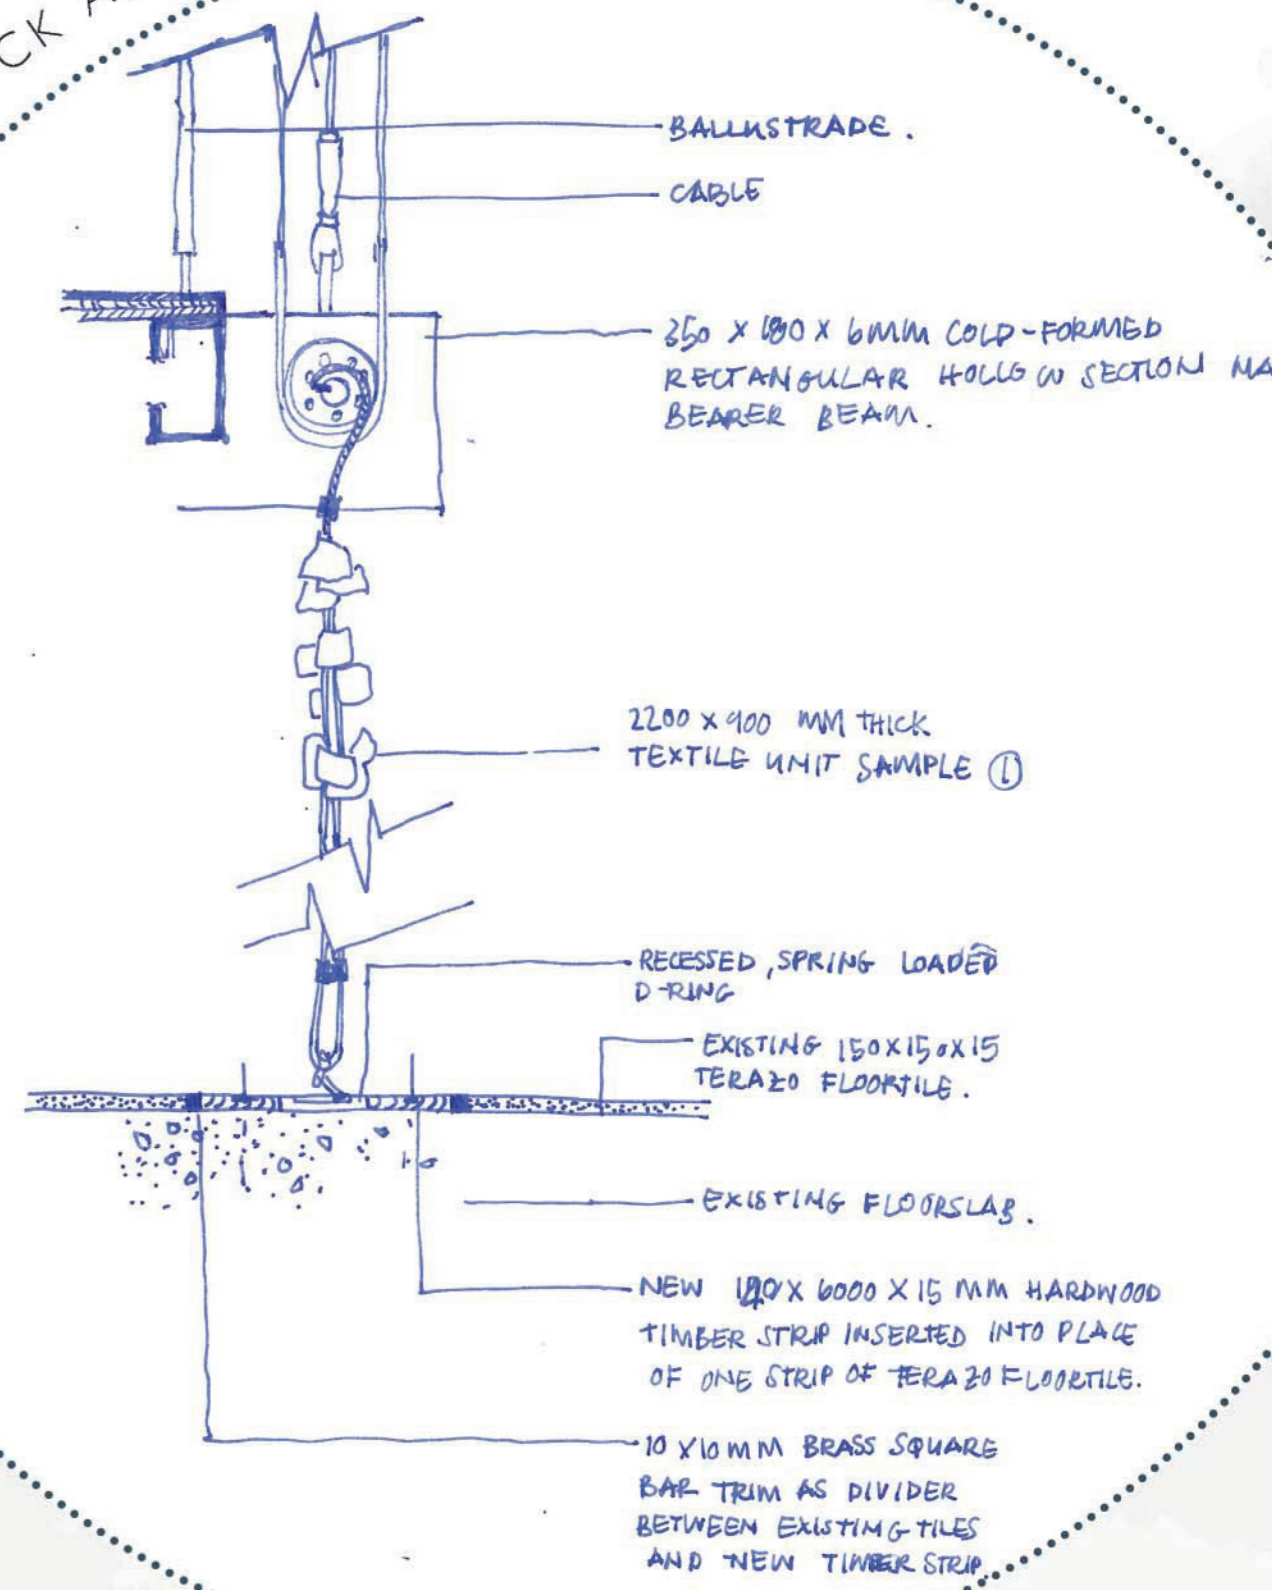 CK
BALLUSTRADE.
CABLE
350 X 180 X 6MM COLD-FORMED
RECTANGULAR HOLLOW SECTION MA
BEARER BEAM.
2200 X 900 MM THICK
TEXTILE UNIT SAMPLE ①
RECESSED, SPRING LOADED
D-RING
EXISTING 150X150X15
TERAZO FLOORTILE.
EXISTING FLOORSLAB.
NEW X 6000 X 15 MM HARDWOOD
TIMBER STRIP INSERTED INTO PLACE
OF ONE STRIP OF TERAZO FLOORTILE.
10 X10MM BRASS SQUARE
BAR TRIM AS DIVIDER
BETWEEN EXISTING TILES
AND NEW TIMBER STRIP.